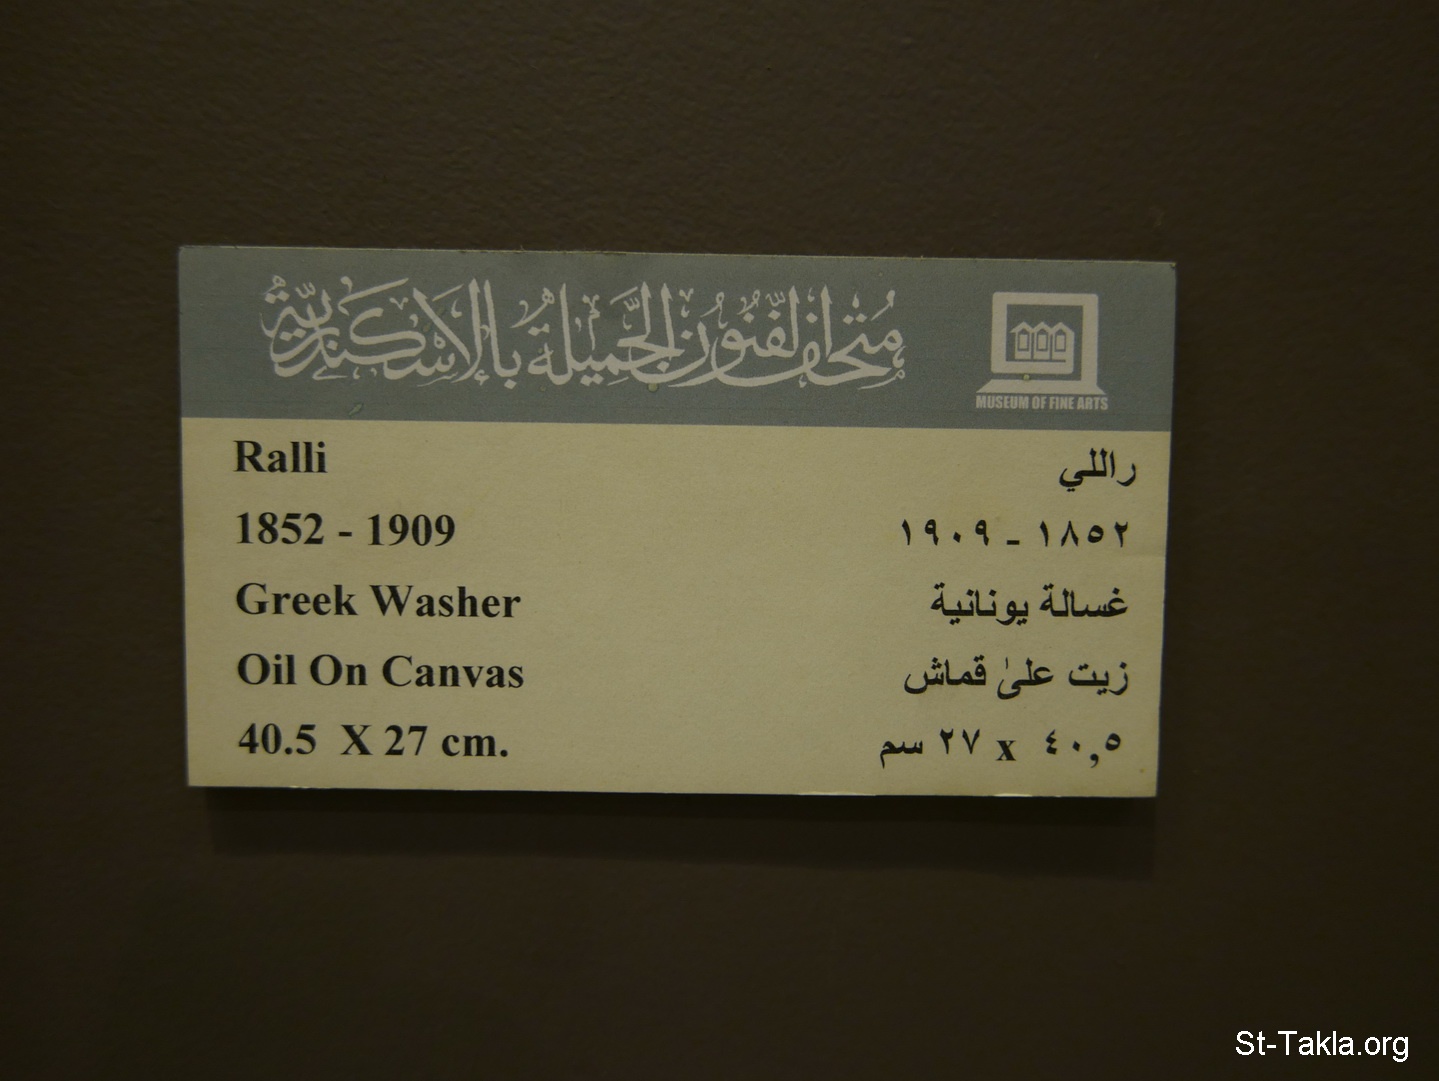 متحف الفنون الجميلة بالإسكندرية
MUSEUM OF FINE ARTS
Ralli
راللي
1852 - 1909
١٨٥٢ - ١٩٠٩
Greek Washer
غسالة يونانية
Oil On Canvas
زيت على قماش
40.5 X 27 cm.
٤٠,٥ x ٢٧ سم
St-Takla.org